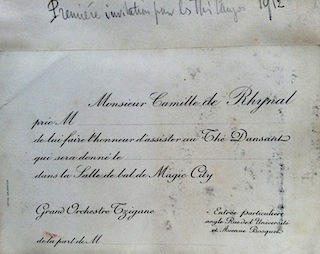 Première invitation pour les Thé Tangos 1912
Monsieur Camille de Rhynal
prie M
de lui faire l'honneur d'assister au Thé Dansant
qui sera donné le
dans la Salle de bal de Magic City
Grand Orchestre Tzigane
Entrée particulière
angle Rue de l'Université
et Avenue Bosquet
de la part de M